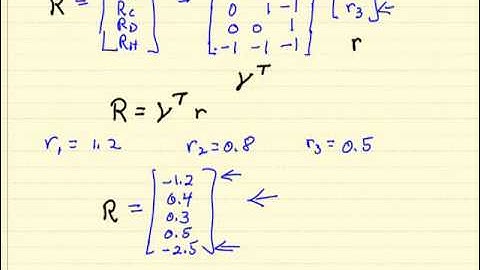 R = [ R_C R_D R_H ] [ 0 1 -1
0 0 1
-1 -1 -1 ] [ r_3 ] ←
r
γ^T
R = γ^T r
r_1 = 1.2 r_2 = 0.8 r_3 = 0.5
R = [ -1.2 ←
0.4 ←
0.3
0.5
-2.5 ] ←